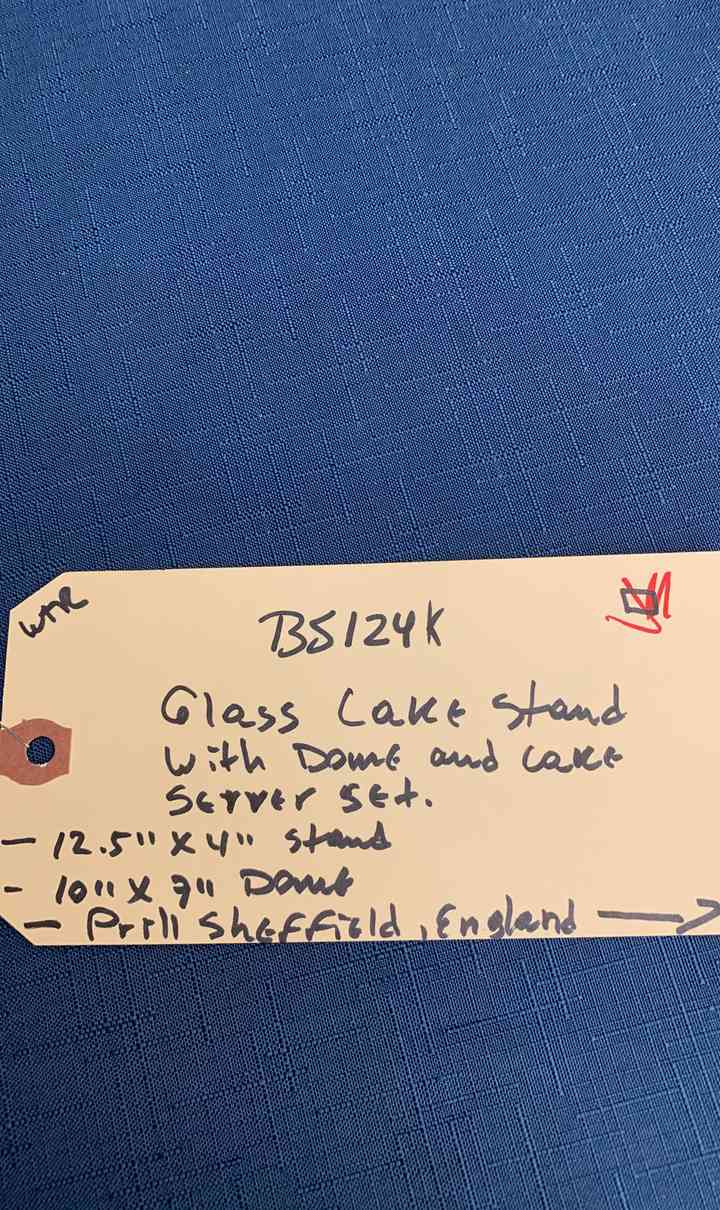 WTR
BS124K
Glass Cake Stand
with Dome and Cake
Server Set.
- 12.5" X 4" Stand
- 10" X 7" Dome
- Prill Sheffield, England →